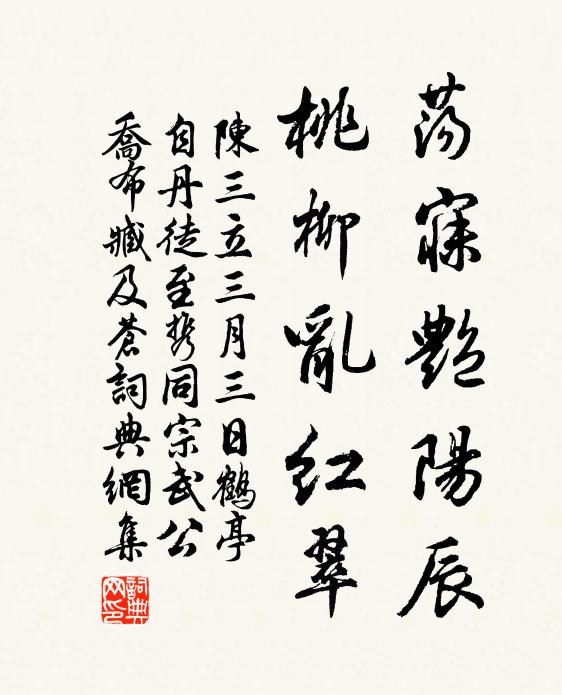 蕩寐艷陽辰
桃柳亂紅翠
陳三立三月三日鶴亭
自丹徒至携同宗武公
喬布臧及蒼詞典網集
詞典網印